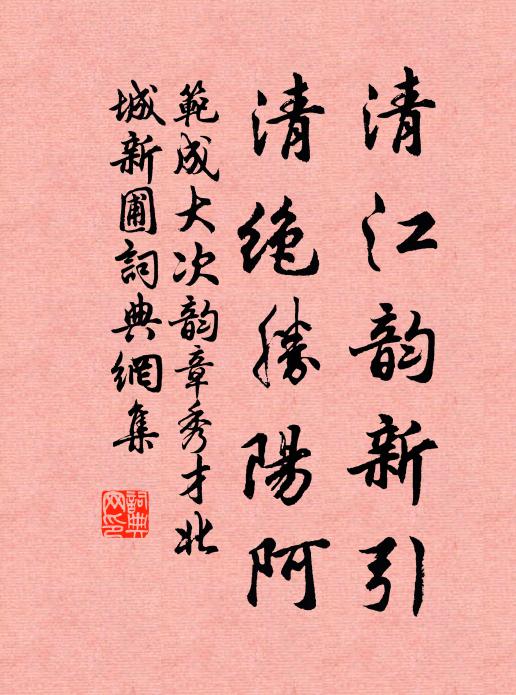 清江韵新引
清绝勝陽阿
範成大次韵章秀才北
城新圃詞典網集
詞典网印